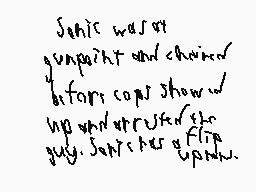 Sonic was at
gunpoint and chained
before cops showed
up and arrested the
guy. Sonic has a flip
upram.